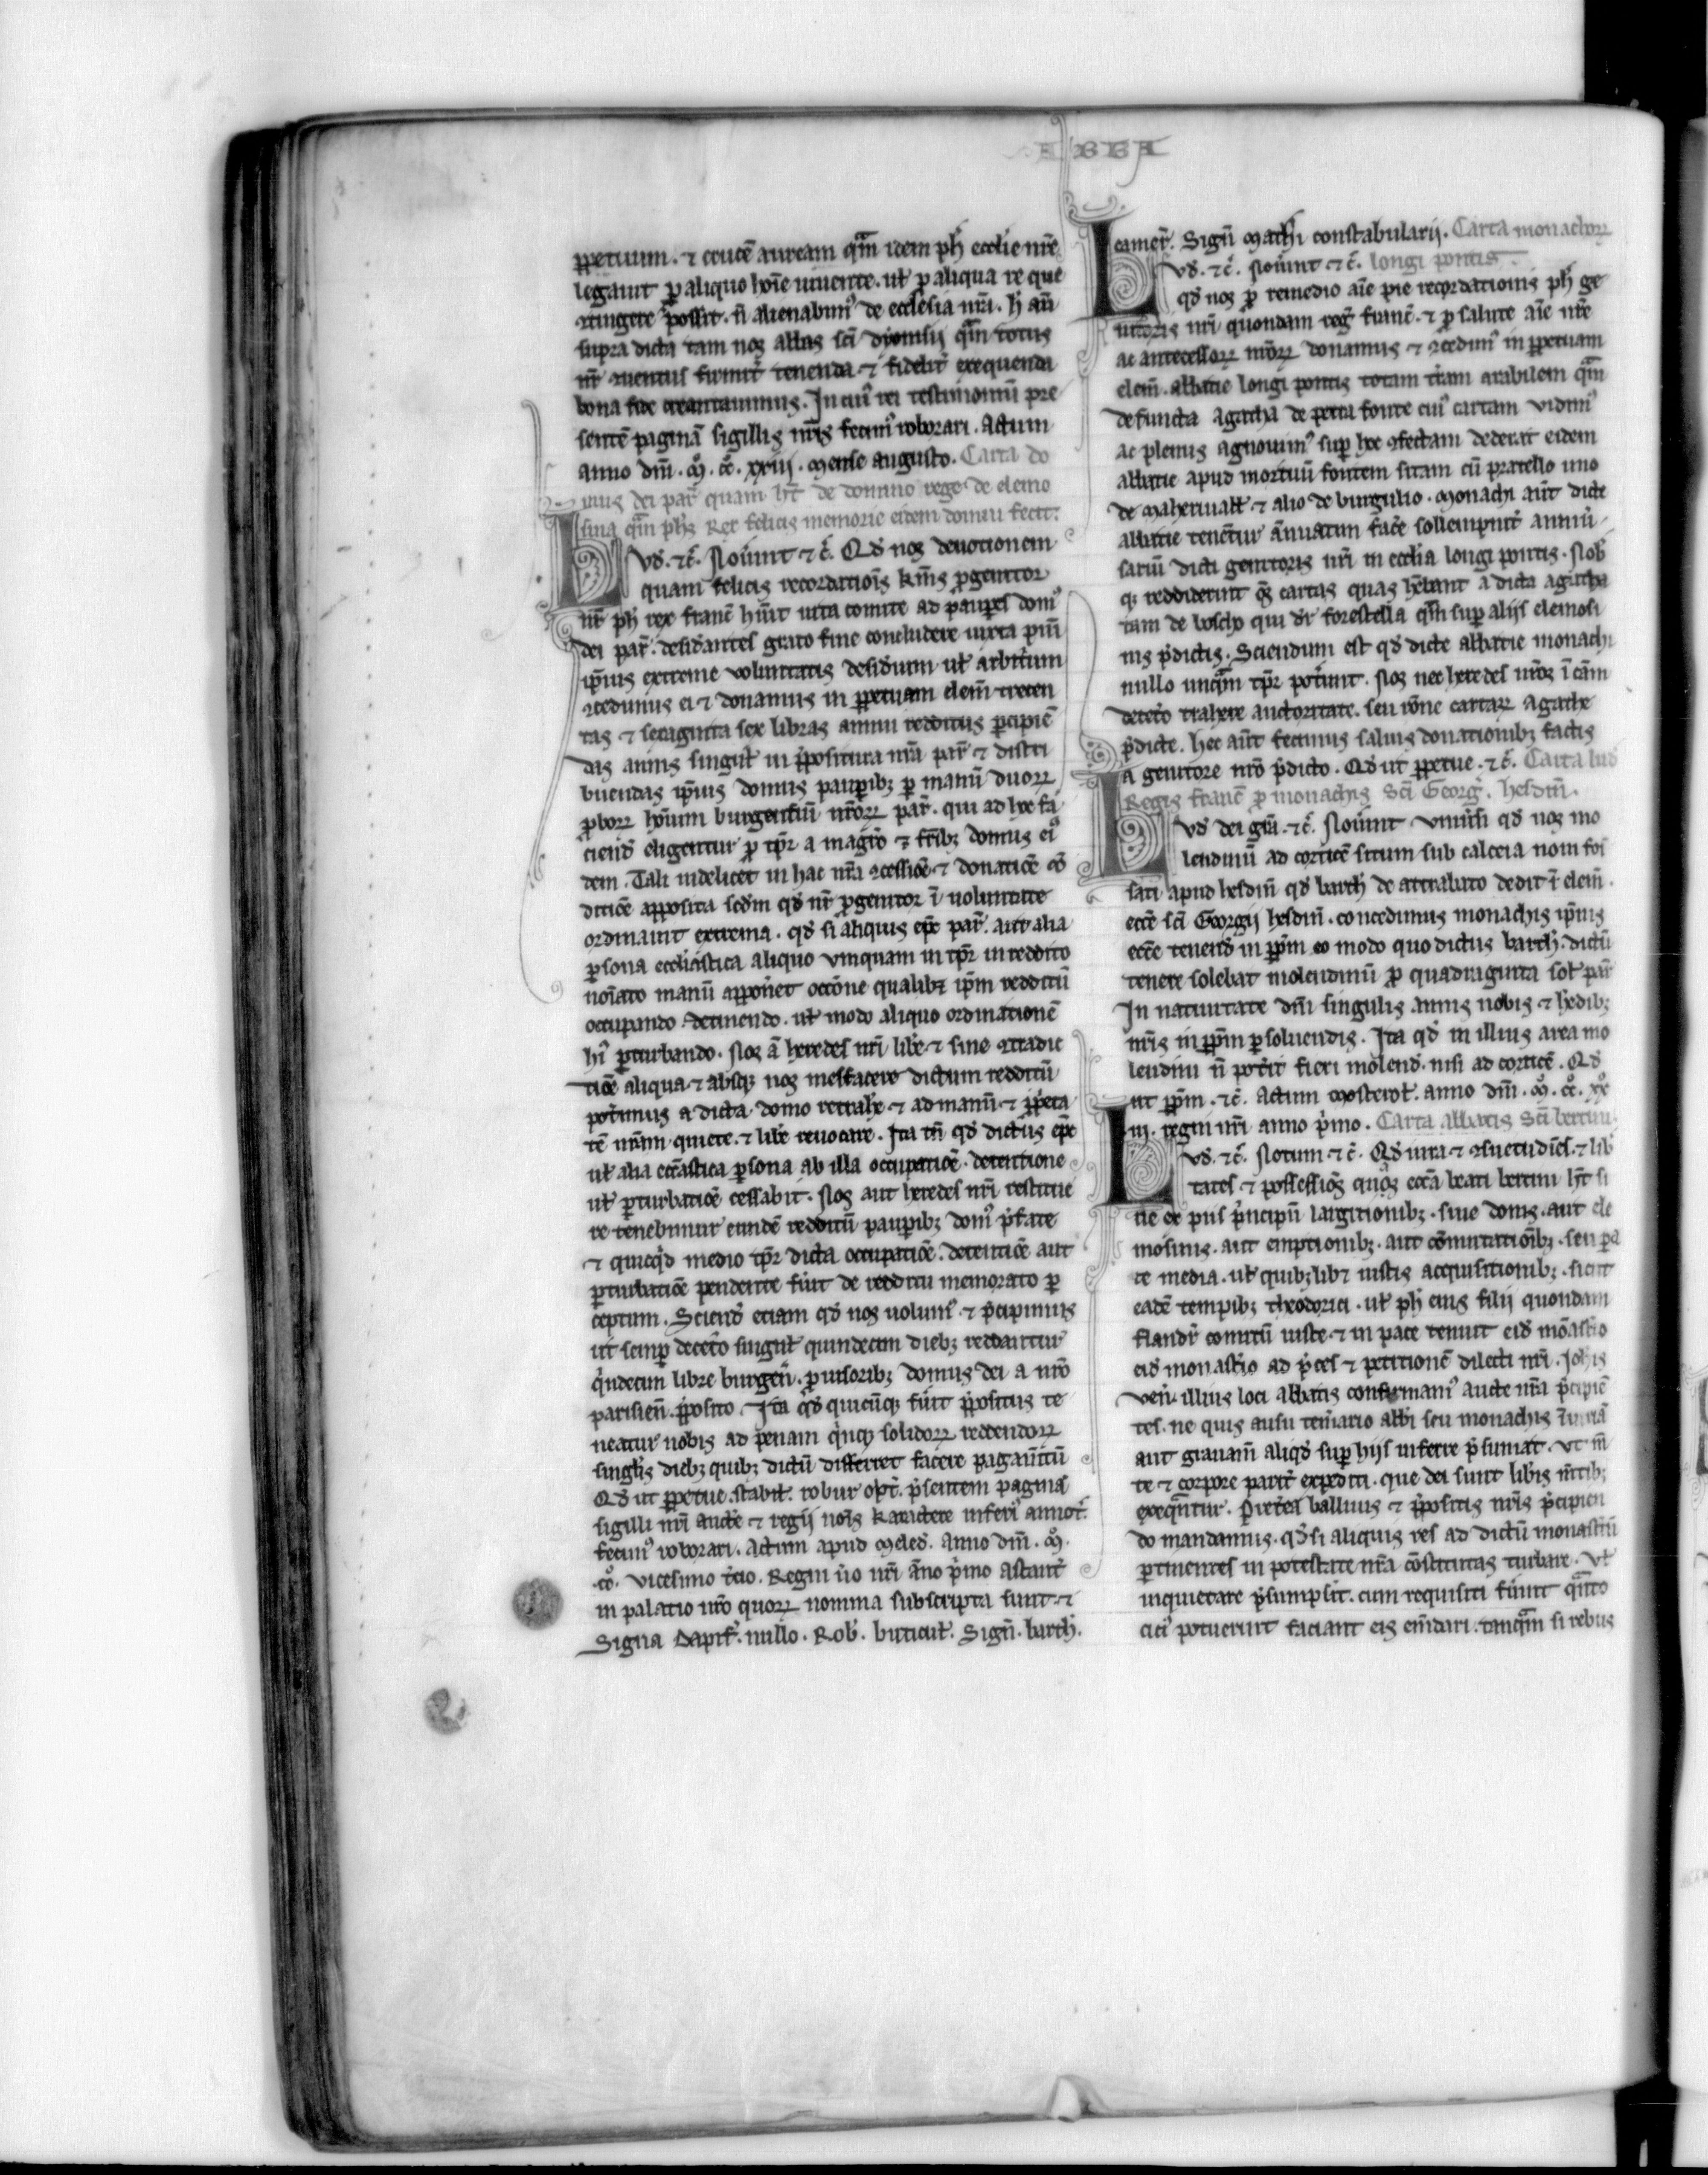 ppetuum. ⁊ crucē auream qͣm idem ph̄ ecclie nr̄e
legauit p aliquo hoīe uiuente. uł p aliqua re que
ꝯtingere possit. ñ alienabimꝰ de ecclesia nr̄i. h̄ aūt
supra dicta tam nos abbas sc̄i dyonisii qͣm totus
nr̄ ꝯuentus firmiť tenenda ⁊ fideliť exequenda
bona fide creantauimus. In cuiꝰ rei testimoniū pre
sentē paginā sigillis nr̄is fecimꝰ roborari. Actum
anno dn̄i. mͦ. ccͦ. xxiij. mense augusto. Carta do
mus dei par̄ quam ht̄ de domino rege de elemo
sina qͣm ph̄s Rex felicis memorie eidem domui fecit.
LVd̄. ⁊c̄. Nou̾int ⁊c̄. Qd̄ nos deuotionem
quam felicis recordatiois km̄s ꝓgenitor
nr̄ ph̄ rex franc̄ hūit iuxta comite ad pauperes domꝰ
dei par̄. desid̾antes grato fine concludere iuxta piū
ip̄ius extreme voluntatis desid̾ium uł arbit̾um
ꝯcedimus ei ⁊ donamus in ppetuam elem̄ trecen
tas ⁊ sexaginta sex libras annui redditus pcipiē
das annis singuł in p̄positura nr̄a par̄ ⁊ distri
buendas ip̄ius domus paupib; p manū duoꝝ
ꝓboꝝ hoīum burgensiū nr̄oꝝ par̄. qui ad hec fa
ciend̄ eligentur ꝓ tp̄r a magr̄o ⁊ fr̄ib; domus eiꝰ
dem. Tali uidelicet in hac nr̄a ꝯcessiōe ⁊ donatiōe cō
ditiōe apposita scd̄m qd̄ nr̄ ꝓgenitor ī uoluntate
ordinauit extrema. qd̄ si aliquis ep̄c par̄. aut alia
psona eccliastica aliquo vnquam in tp̄r in reddito
noīato manū apponet occōne qualib; ip̄m redditū
occupando detinendo. uł modo aliquo ordinationē
hͥ pturbando. Nos ā heredes nr̄i lib̾e ⁊ sine ꝯtradic
tiōe aliqua ⁊ absq; nos mesfacere dictum redditū
pot̾imus a dicta domo retrahe ⁊ ad manū ⁊ ꝓpeta
tē nr̄am quiete. ⁊ lib̾e reuocare. Ita tn̄ qd̄ dictus ep̄c
uł alia ecc̄astica psona ab illa occupatiōe. detentione
uł pturbatiōe cessabit. Nos aut heredes nr̄i restitue
re tenebimur eundē redditū paupib; domꝰ p̄fate
⁊ quicqͥd medio tp̄r dicta occupatiōe. detentiōe aut
pturbatiōe pendente fu̾it de redditu memorato p
ceptum. Sciend̄ etiam qd̄ nos uolumꝰ ⁊ p̄cipimus
ut semp decet̾o singuł quindecim dieb; reddantur
qͥndecim libre burgen̄. ꝓuisorib; domus dei a nr̄o
parisien̄. p̄posito. Ita qd̄ quicūq; fu̾it p̄positus te
neatur nobis ad penam qͥnq; solidoꝝ reddendoꝝ
singlis dieb; quib; dictū differret facere pagam̄tū
Qd̄ ut ppetue. stabił. robur opt̾. p̄sentem pagina
sigilli nr̄i aucte ⁊ regii nois karactere inferiꝰ annot̾.
fecimꝰ roborari. Actum apud meled̄. Anno dn̄i. mͦ.
ccͦ. vicesimo t̾cio. Regni u̾o nr̄i āno pͥmo astant̾
in palatio nr̄o quoꝝ nomina subscripta sunt ⁊
Signa dapif̾. nullo. Rob̄. buticuł. Sign̄. barth̾.
camer̄. Sign̄ mathi constabularij. Carta monachoꝝ
LVd̄. ⁊c̄. Nou̾int ⁊c̄. longi pontis.
qd̄ nos ꝓ remedio aīe pie recordationis ph̄ ge
nitoris nr̄i quondam reg̾ franc̄. ⁊ ꝓ salute aīe nr̄e
ac antecessoꝝ nr̄oꝝ donamus ⁊ ꝯcedimꝰ in ppetuam
elem̄. abbatie longi pontis totam t̾ram arabilem qͣm
defuncta agatha de petra fonte cuiꝰ cartam vidimꝰ
ac plenius agnouimꝰ sup hec ꝯfectam dederat eidem
abbatie apud mortuū fontem sitam cū pratello uno
de maheruall̄. ⁊ alio de burgulio. Monachi aūt dicte
abbatie tenētur āmuatim fac̾e sollempnit̾ anniu̾
sariū dicti genitoris nr̄i in ecclia longi pontis. Nob̄
q; reddiderunt os̄ cartas quas hēbant a dicta agatha
tam de bosco qui dr̄ forestella qͣm sup aliis elemosi
nis p̄dictis. Sciendum est qd̄ dicte abbatie monachi
nullo unqͣm tp̄r pot̾unt. Nos nec heredes nr̄os ī cām
decet̾o trahere auctoritate. seu rōne cartaꝝ Agathe
p̄dicte. hec aūt fecimus saluis donationib; factis
a genitore nr̄o p̄dicto. Qd̄ ut ppetue. ⁊c̄. Carta lud̄
Regis franc̄ ꝓ monachis Sc̄i Georg̾. hesdin̄.
LVd̄ dei gr̄a. ⁊c̄. Nou̾int vniu̾si qd̄ nos mo
lendinū ad corticē situm sub calceia nom foī
sati apud hesdin̄ qd̄ barth̾ de attrabato dedit ī elem̄.
ecc̄e sc̄i Georgii hesdin̄. concedimus monachis ip̄ius
ecc̄e tenend̄ in pp̄m eo modo quo dictus barth̾. dictū
tenere solebat molendinū ꝓ quadraginta soł par̄
In natiuitate dn̄i singulis annis nobis ⁊ h̾edib;
nr̄is in pp̄m psoluendis. Ita qd̄ in illius area mo
lendini ñ pot̾it fieri molend̄. nisi ad corticē. Qd̄
ut pp̄m. ⁊c̄. Actum mosteroł. anno dn̄i. mͦ. ccͦ. xxͦ
iij. regni nr̄i anno pͥmo. Carta abbatis Sc̄i bertini
LVd̄. ⁊c̄. Notum ⁊c̄. Qd̄ iura ⁊ ꝯsuetudies. ⁊ lib̾
tates ⁊ possessiōs quas ecc̄a beati bertini ht̄ si
ue ex piis pͥncipū largitionib;. siue donis. aut ele
mosinis. aut emptionib;. aut cōmutatiōib;. seu pa
ce media. uł quib;lib; iustis acquisitionib;. sicut
eadē tempib; theodorici. uł ph̄ eius filii quondam
flandr̄ comitū iuste. ⁊ in pace tenuit eid̄ mōast̾io
eid̄ monast̾io ad p̄ces ⁊ petitionē dilecti nr̄i. Johis
ven̾. illius loci abbatis confirmamꝰ aucte nr̄a p̄cipiē
tes. ne quis ausu tem̾ario abbi seu monachis īiuriā
aut grauam̄ aliqd̄ sup hiis inferre p̄sumat. Vt m̄
te ⁊ corpore parit̾ expediti. que dei sunt lib̾is m̄tib;
exeqͣntur. P̾terea balliuis ⁊ p̄positis nr̄is p̄cipien
do mandamus. qd̄ si aliquis res ad dictū monast̾iū
ptinentes in potestate nr̄a cōstitutas turbare. Vł
inquietare p̄sumpsit. cum requisiti fu̾int qͣnto
ciꝰ potuerint faciant eis em̄dari. tanqͣm si rebus